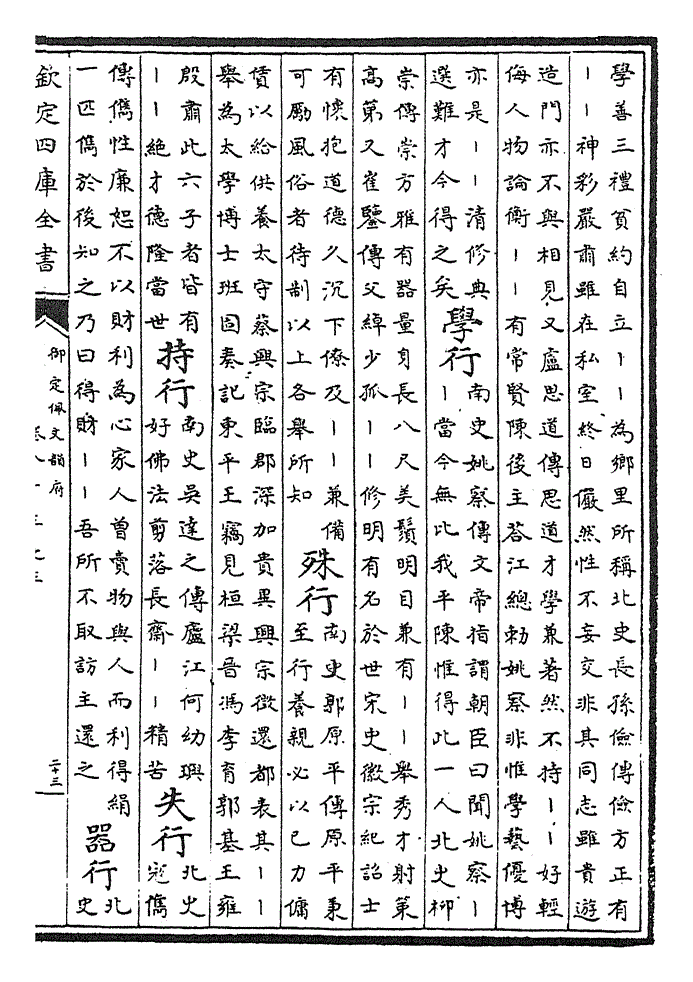 學善三禮貧約自立丨丨為鄉里所稱北史長孫儉傳儉方正有
丨丨神彩嚴肅雖在私室終日儼然性不妄交非其同志雖貴遊
造門亦不與相見又盧思道傳思道才學兼著然不持丨丨好輕
侮人物論衡丨丨有常賢陳後主荅江總勅姚察非惟學藝優博
亦是丨丨清修典
選難才今得之矣
學行
南史姚察傳文帝指謂朝臣曰聞姚察丨
丨當今無比我平陳惟得此一人北史柳
崇傳崇方雅有器量身長八尺美鬚明目兼有丨丨舉秀才射策
高第又崔鑒傳父綽少孤丨丨修明有名於世宋史徽宗紀詔士
有懷抱道德久沉下僚及丨丨兼備
可勵風俗者待制以上各舉所知
殊行
南史郭原平傳原平秉
至行養親必以己力傭
賃以給供養太守蔡興宗臨郡深加貴異興宗徵還都表其丨丨
舉為太學博士班固奏記東平王竊見桓梁晉馮李育郭基王雍
殷肅此六子者皆有
丨丨絶才德隆當世
持行
南史吳逵之傳廬江何幼璵
好佛法剪落長齋丨丨精苦
失行
北史
寇儁
傳儁性廉恕不以財利為心家人曾賣物與人而利得絹
一匹儁於後知之乃曰得財丨丨吾所不取訪主還之
器行
北
史
欽定四庫全書
御定佩文韻府
二十三